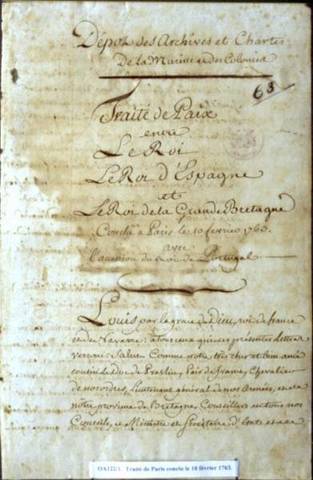 Dépot des Archives et Chartes
De la Marine et des Colonies
68
Traité de Paix
entre
Le Roi
Le Roi d'Espagne
et
Le Roi de la Grande Bretagne
Conclu à Paris le 10 fevrier 1763.
avec
l'accession du Roi de Portugal
Louis par la grace de Dieu, roi de france
et de Navarre; a tous ceux qui ces présentes Lettres
verront Salut. Comme notre tres cher et bien amé
cousin le Duc de Praslin, Pair de france, Chevalier
de nos ordres, Lieutenant général de nos Armées, et de
notre province de Bretagne, Conseiller en tous nos
Conseils, et Ministre et Secrétaire d'Etat et de
Traité de Paris conclu le 10 février 1763.